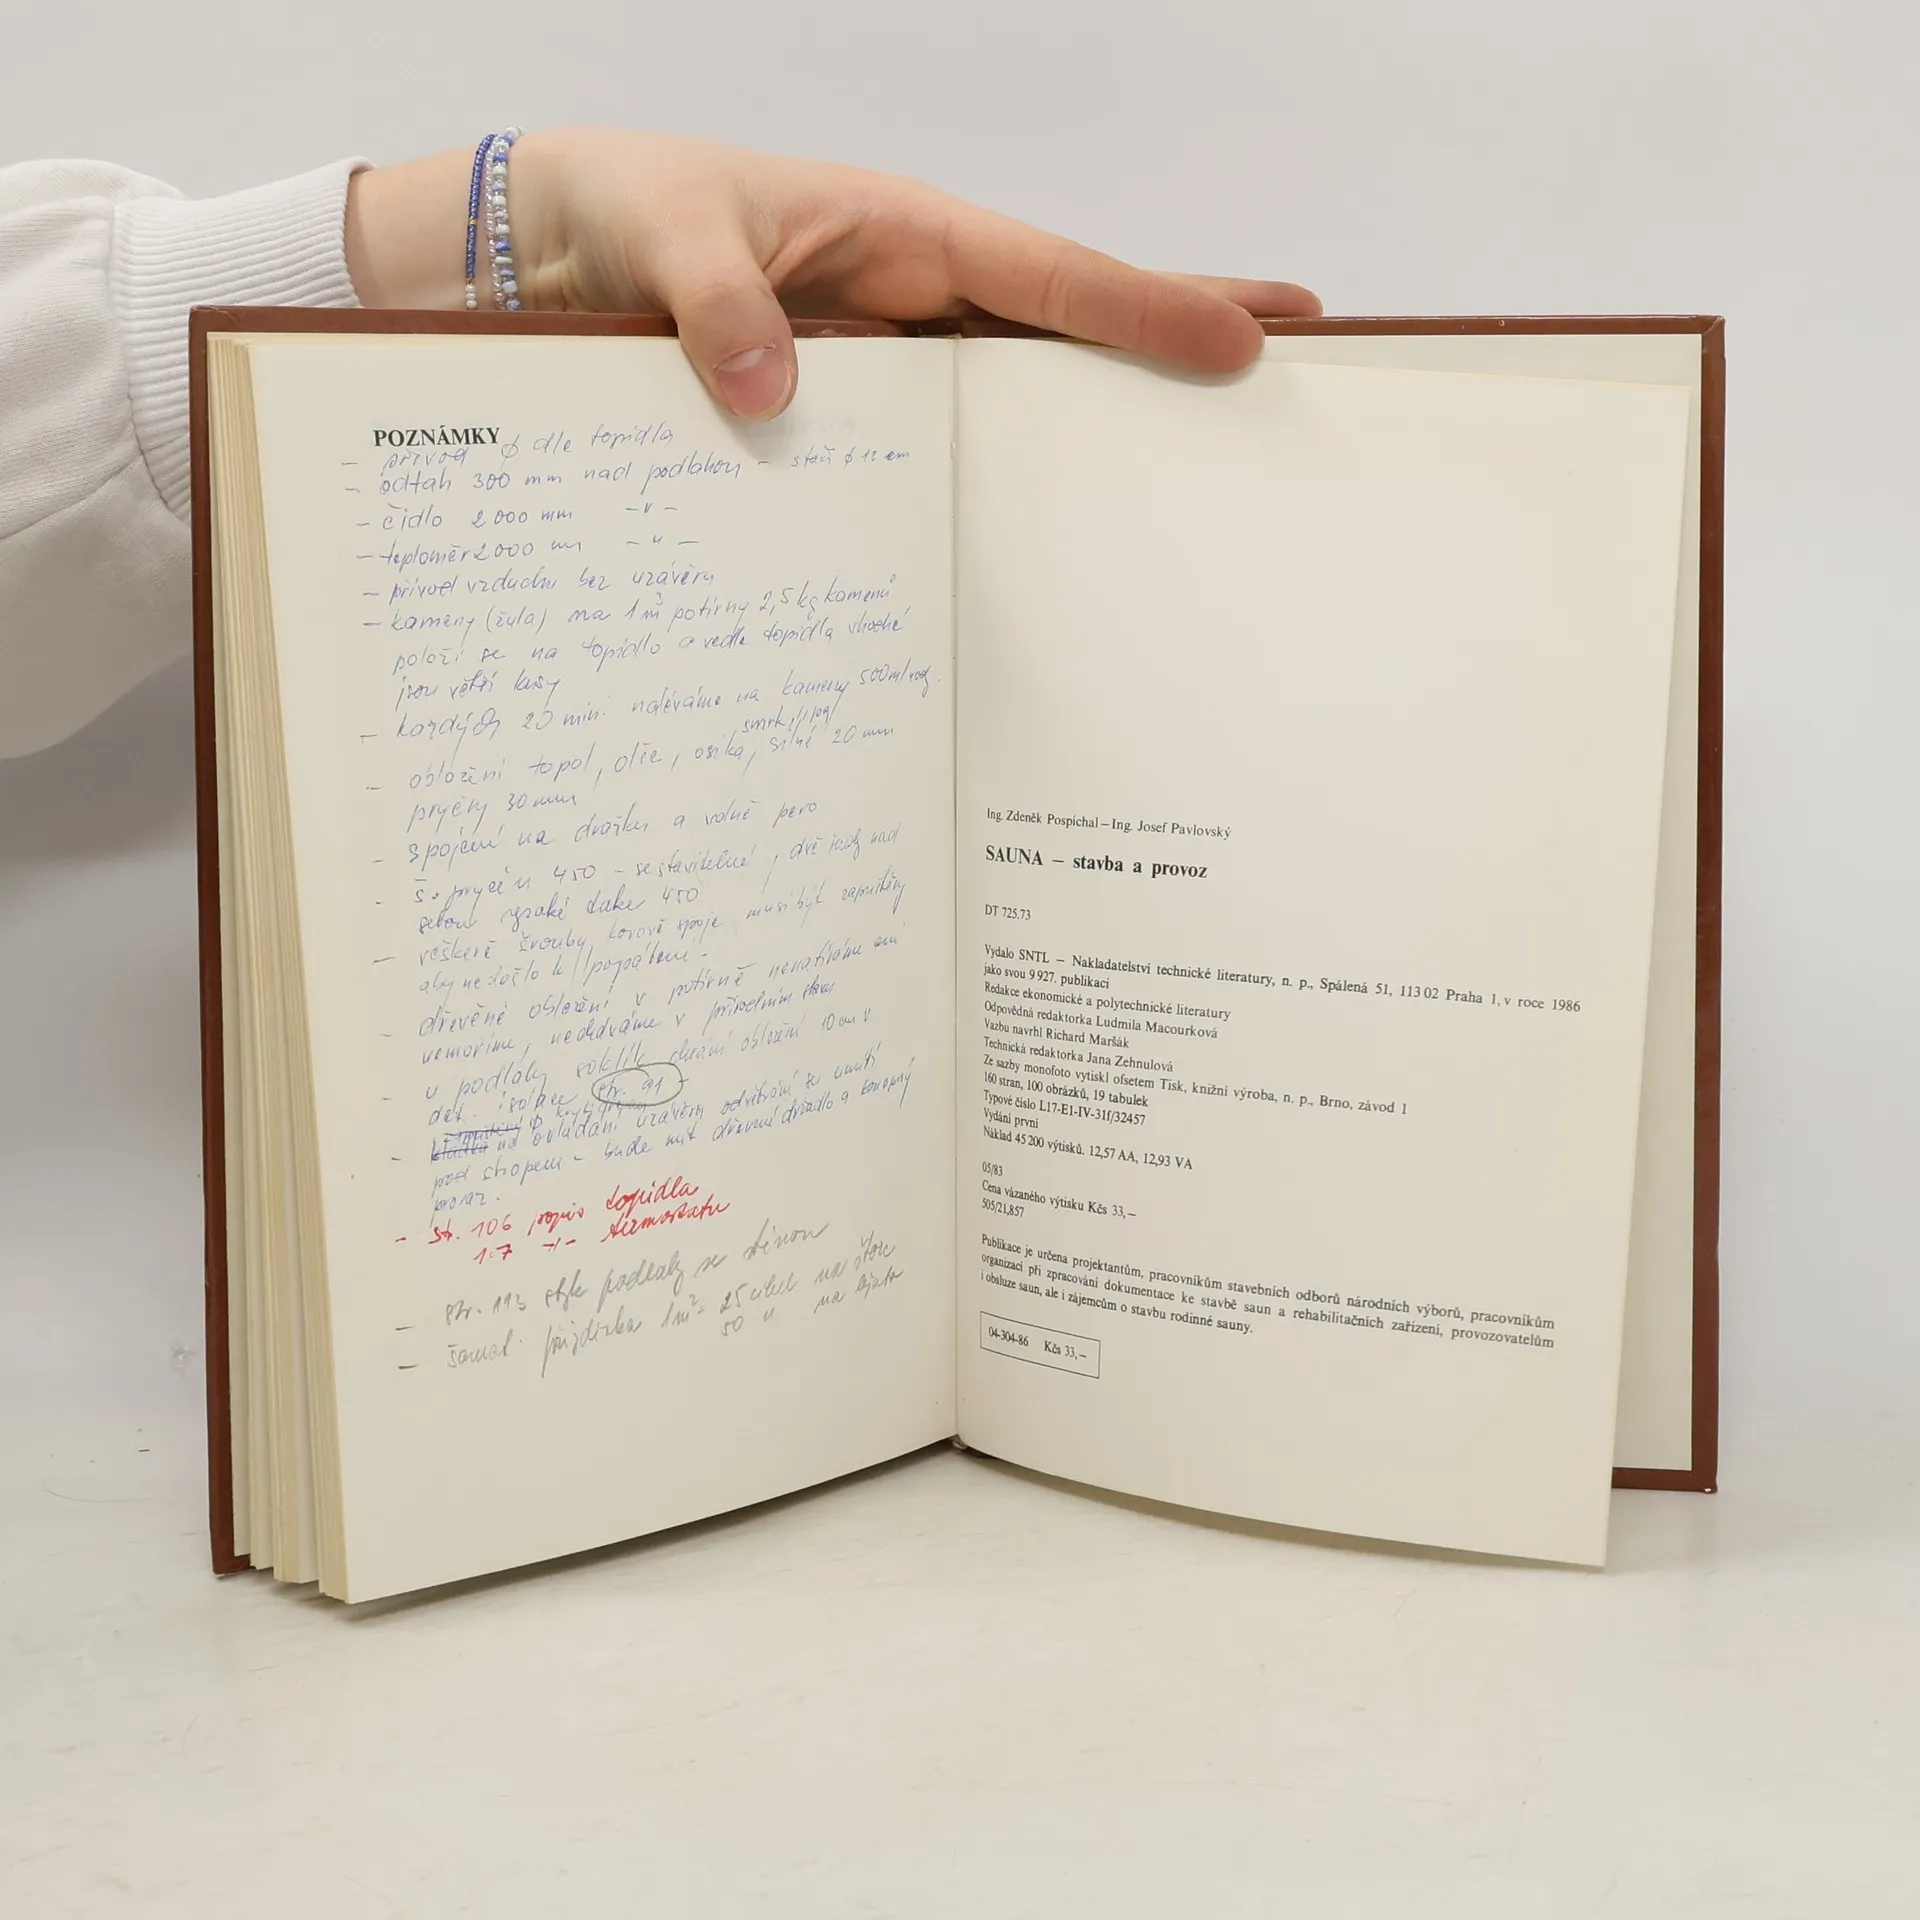 POZNÁMKY
- přívod ϕ dle topidla
- odtah 300 mm nad podlahou - stačí ϕ 12 cm
- čidlo 2000 mm -"-
- teploměr 2000 mm -"-
- přívod vzduchu bez uzávěru
- kameny (žula) na 1 m³ potírny 2,5 kg kamenů
položí se na topidlo a vedle topidla vhodné
jsou větší kusy
- každých 20 min. naléváme na kameny 500 ml vody.
smrk, lípa
- obložení topol, olše, osika, silné 20 mm
pryčny 30 mm
- spojení na drážku a volné pero
- š. pryčen 450 - sestavitelné, dvě řady nad
sebou vysoké také 450
- veškeré šrouby, kovové spoje musí být zapuštěny
aby nedošlo k popálení.
- dřevěné obložení v potírně nenatíráme ani
nemoříme, necháváme v přírodním stavu
- u podlahy soklík chrání obložení 10 cm v
det. izolace str. 91
- na ovládání uzávěru odvětrání se umístí
pod stropem - bude mít dřevené držadlo a konopný
provaz.
- str. 106 popis topidla
107 -"- termostatu
- str. 113 styk podlahy se stěnou
- šamot. přizdívka 1 m² = 25 cihel na štorc
50 " na ležato
Ing. Zdeněk Pospíchal – Ing. Josef Pavlovský
SAUNA – stavba a provoz
DT 725.73
Vydalo SNTL – Nakladatelství technické literatury, n. p., Spálená 51, 113 02 Praha 1, v roce 1986
jako svou 9 927. publikaci
Redakce ekonomické a polytechnické literatury
Odpovědná redaktorka Ludmila Macourková
Vazbu navrhl Richard Maršák
Technická redaktorka Jana Zehnulová
Ze sazby monofoto vytiskl ofsetem Tisk, knižní výroba, n. p., Brno, závod 1
160 stran, 100 obrázků, 19 tabulek
Typové číslo L17-E1-IV-31f/32457
Vydání první
Náklad 45 200 výtisků. 12,57 AA, 12,93 VA
05/83
Cena vázaného výtisku Kčs 33,–
505/21,857
Publikace je určena projektantům, pracovníkům stavebních odborů národních výborů, pracovníkům
organizací při zpracování dokumentace ke stavbě saun a rehabilitačních zařízení, provozovatelům
i obsluze saun, ale i zájemcům o stavbu rodinné sauny.
04-304-86 Kčs 33,–